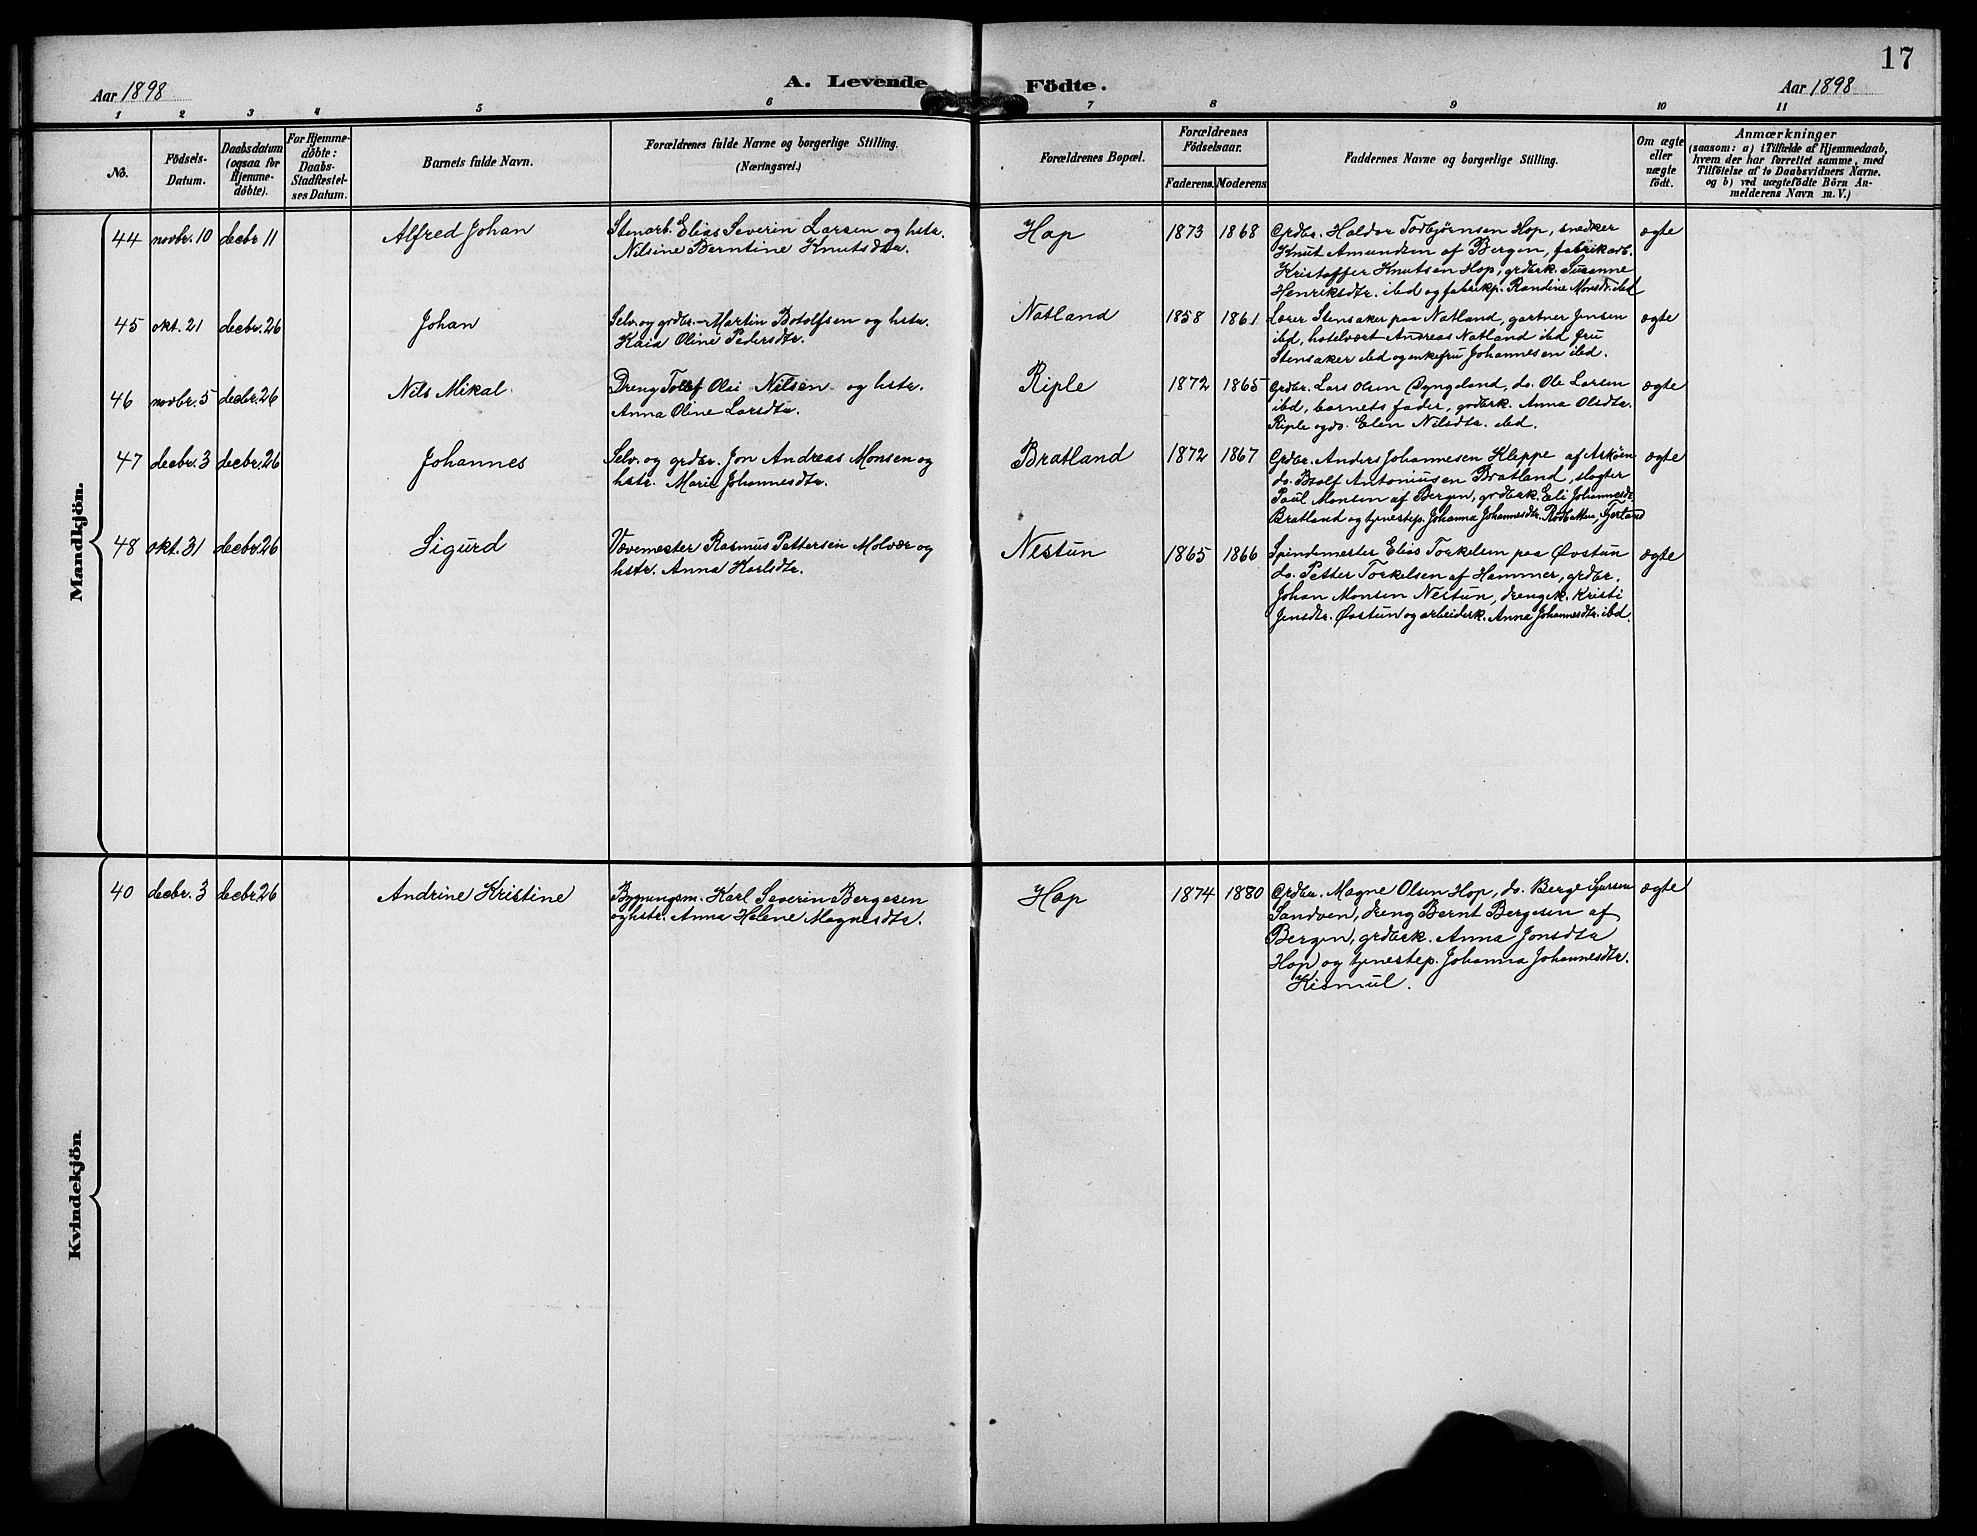 17
Aar 1898
A. Levende Födte.
Aar 1898
1 2 3 4 5 6 7 8 9 10 11
No.
Födsels-
Datum.
Daabsdatum
(ogsaa for
Hjemme-
döbte).
For Hjemme-
döbte:
Daabs-
Stadfæstel-
ses Datum.
Barnets fulde Navn.
Forældrenes fulde Navne og borgerlige Stilling.
(Næringsvei.)
Forældrenes Bopæl.
Forældrenes
Födselsaar.
Faderens. Moderens.
Faddernes Navne og borgerlige Stilling.
Om ægte
eller
uægte
født.
Anmærkninger
(saasom: a) i Tilfælde af Hjemmedaab,
hvem der har forrettet samme, med
Tilföielse af to Daabsvidners Navne.
og b) ved uægtefödte Börn An-
melderens Navn m.V.)
Mandkjön.
44 novbr. 10 decbr 11 Alfred Johan
Stenarb. Elias Severin Larsen og hstr.
Nilsine Berntine Knutsdtr.
Hop 1873 1868
Grdbr. Haldor Torbjørnsen Hop, snedker
Knut Amundsen af Bergen, fabrikarb.
Kristoffer Knutsen Hop, grdbrk. Susanne
Henriksdtr. ibd og fabrikp. Randine Monsdtr. ibd
ægte
45 okt. 21 decbr. 26 Johan
Selv. og grdbr. Martin Botolfsen og hstr.
Kaia Oline Pedersdtr.
Natland 1858 1861
Lærer Stensaker paa Natland, gartner Jensen
ibd, hotelvært Andreas Natland ibd fru
Stensaker ibd og enkefru Johannesen ibd.
ægte
46 novbr. 5 decbr. 26 Nils Mikal
Dreng Tollef Olai Nilsen og hstr.
Anna Oline Larsdtr.
Riple 1872 1865
Grdbr. Lars Olsen Øyngeland, do. Ole Larsen
ibd, barnets fader, grdbrk. Anna Olsdtr.
Riple og do. Elen Nilsdtr. ibd.
ægte
47 decbr. 3 decbr. 26 Johannes
Selv. og grdbr. Jon Andreas Monsen og
hstr. Marie Johannesdtr.
Bratland 1872 1867
Grdbr. Anders Johannesen Kleppe af Askøen
do. Botolf Antoniusen Bratland, slagter
Paul Monsen af Bergen, grdbrk. Eli Johannesdtr.
Bratland og tjenestep. Johanna Johannesdtr.
ægte
48 okt. 31 decbr. 26 Sigurd
Vævemester Rasmus Pettersen Molvær og
hstr. Anna Karlsdtr.
Nestun 1865 1866
Spindemester Elias Torkelsen paa Øvstun
do. Petter Torkelsen af Hammer, grdbr.
Johan Monsen Nestun, drengk. Kristi
Jensdtr. Øvstun og arbeiderk. Anna Johannesdtr. ibd.
ægte
Kvindekjön
40 decbr. 3 decbr. 26 Andrine Kristine
Bygningsm. Karl Severin Bergesen
og hstr. Anna Helene Magnesdtr.
Hop 1874 1880
Grdbr. Magne Olsen Hop, do. Berge
Sandven, dreng Bernt Bergesen af
Bergen, grdbrk. Anna Jonsdtr
Hop og tjenestep. Johanna Johannesdtr.
Kismul.
ægte